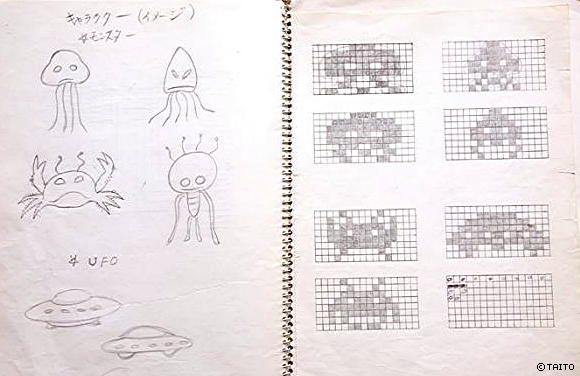 キャラクター(イメージ)
☆モンスター
☆UFO
©TAITO